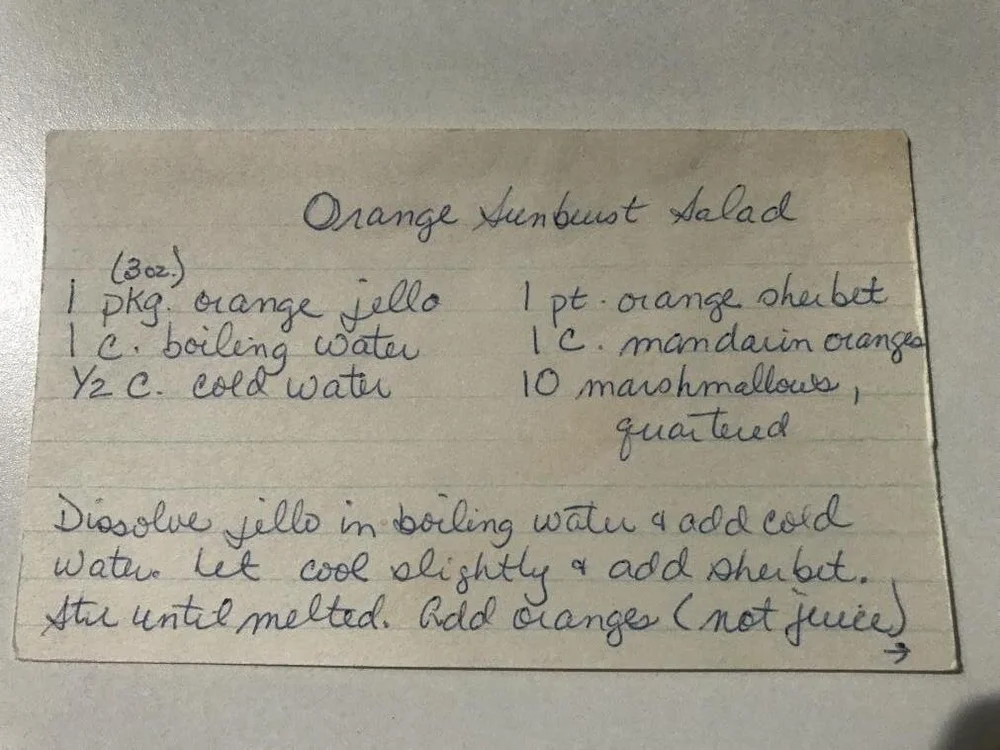 Orange Sunburst Salad
(3 oz.)
1 pkg. orange jello
1 c. boiling water
1/2 c. cold water
1 pt. orange sherbet
1 c. mandarin oranges
10 marshmallows,
quartered
Dissolve jello in boiling water & add cold
water. Let cool slightly & add sherbet.
Stir until melted. Add oranges (not juice)
→